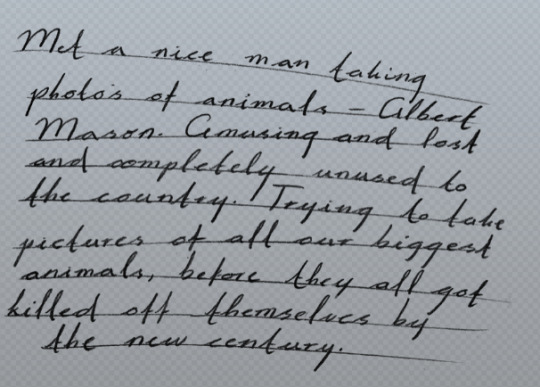 Met a nice man taking
photo's of animals – Albert
Mason. Amusing and lost
and completely unused to
the country. Trying to take
pictures of all our biggest
animals, before they all got
killed off themselves by
the new century.